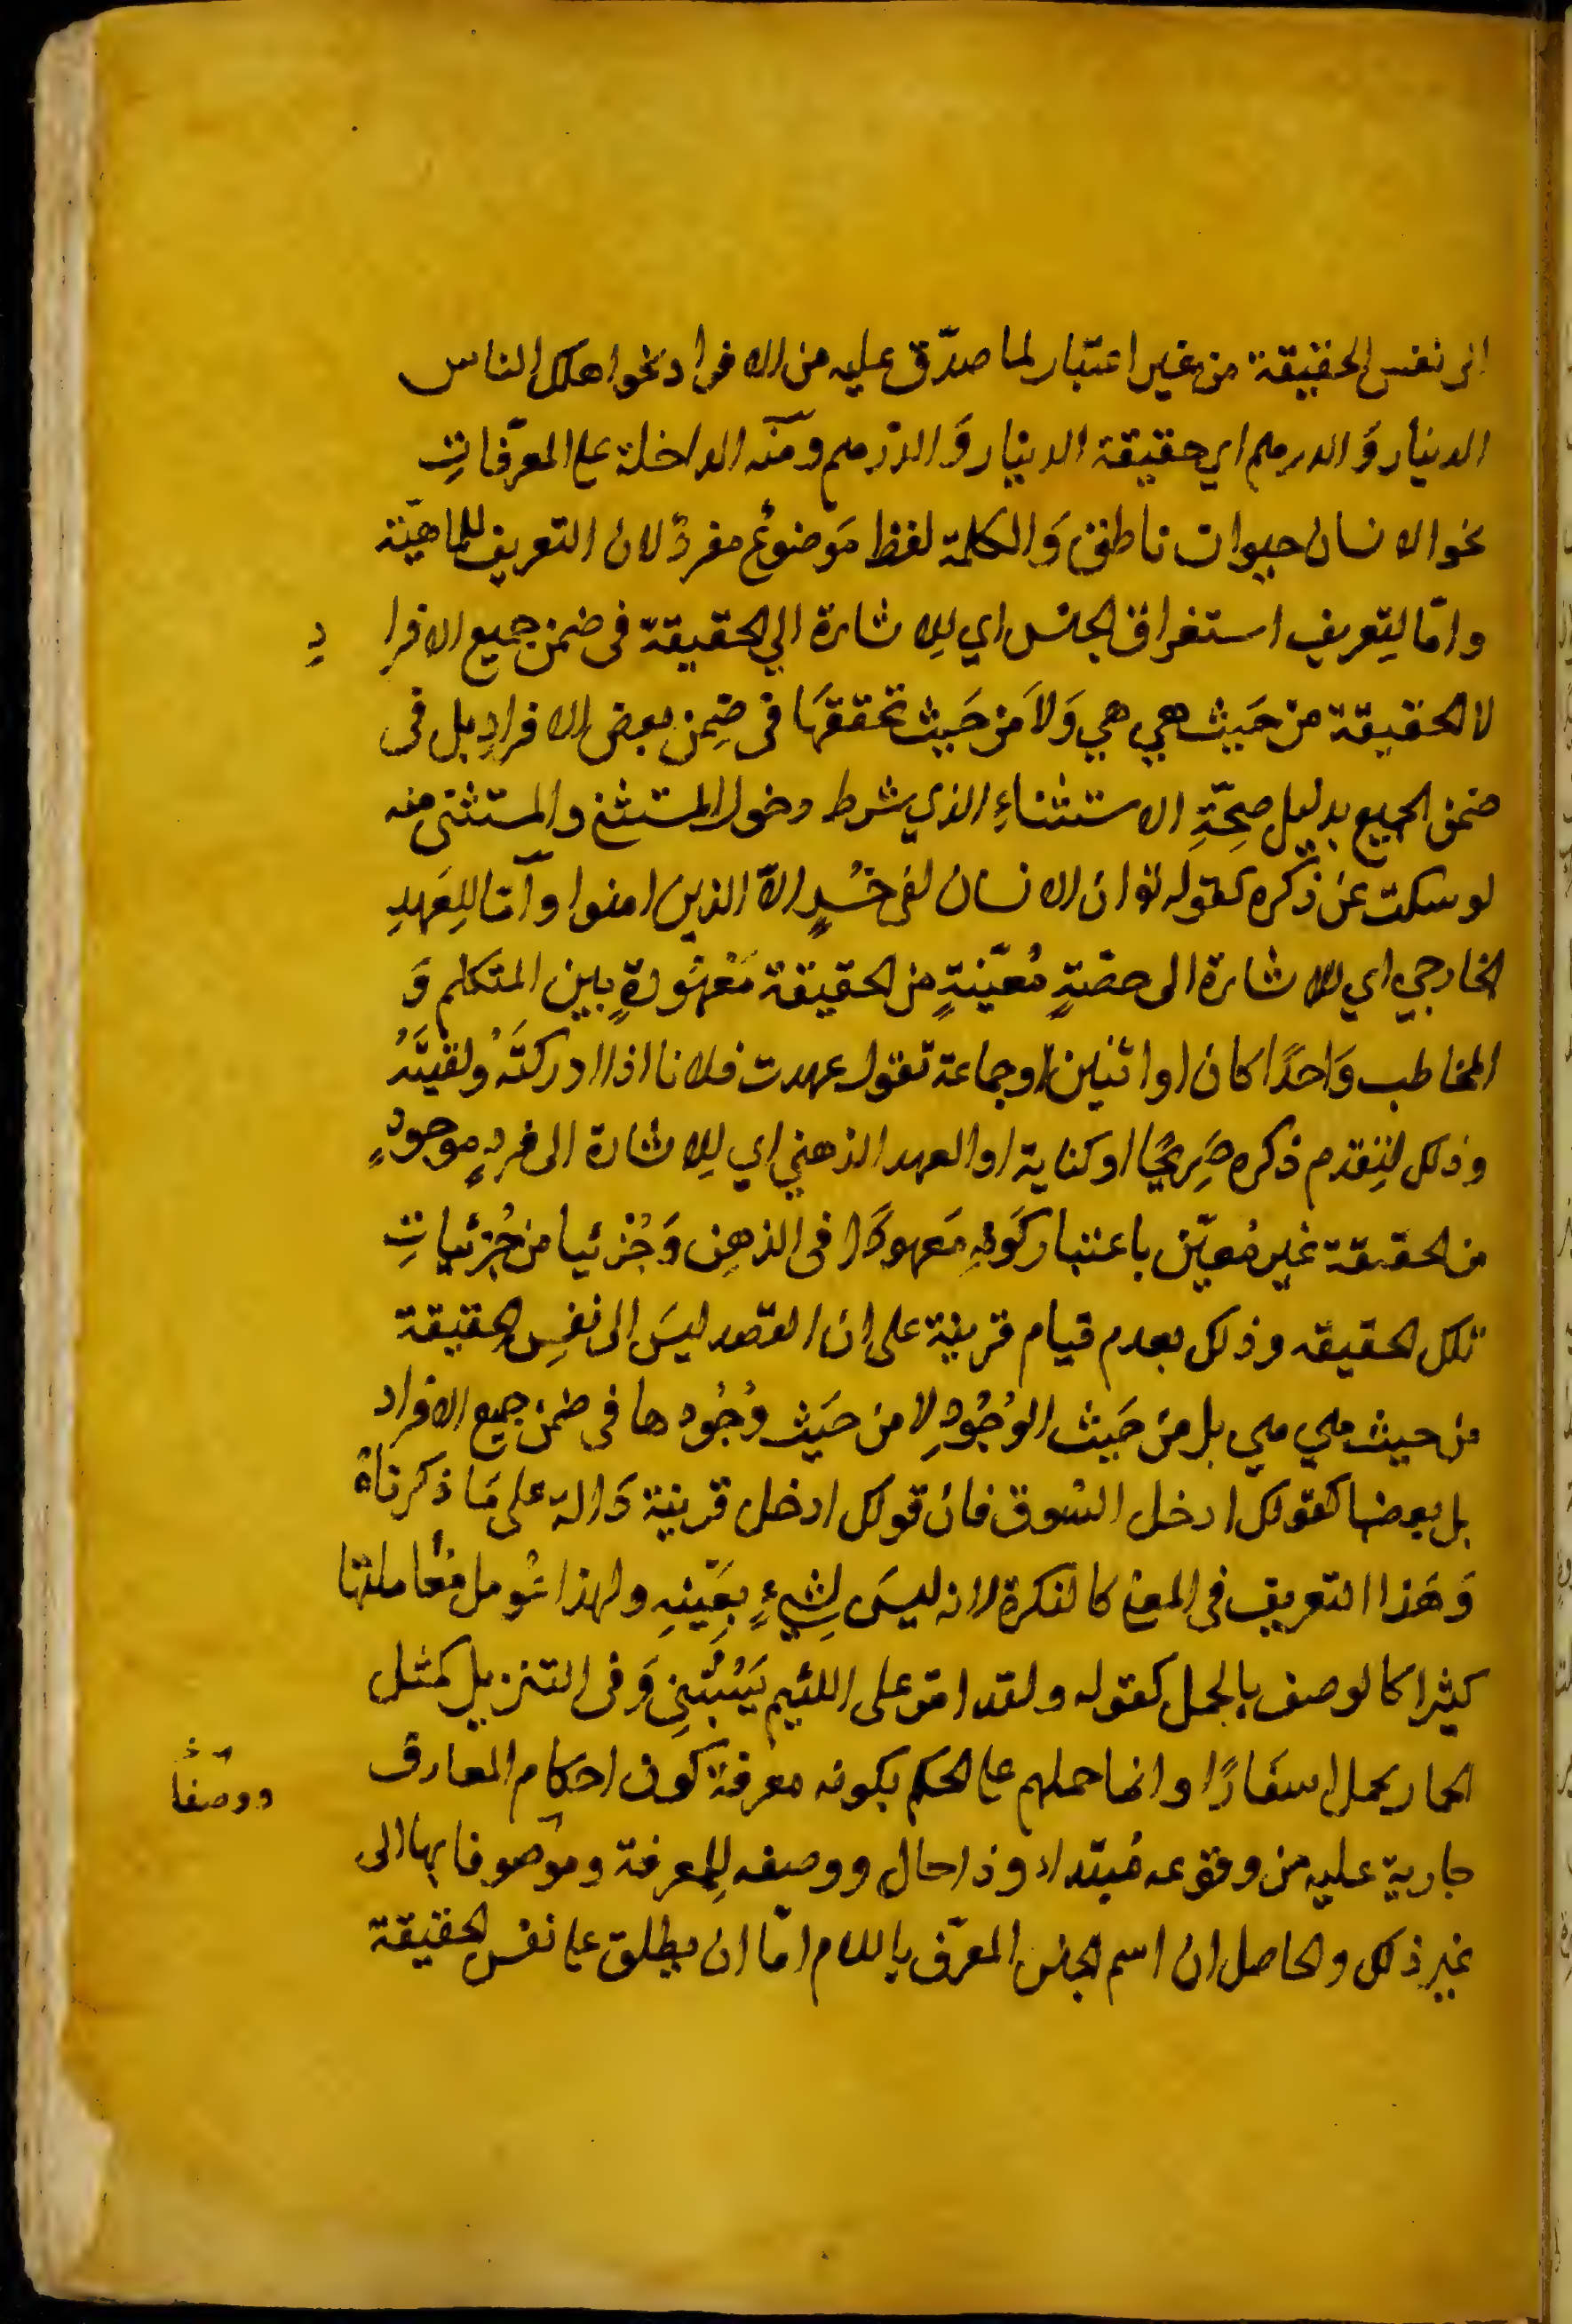 الى نفس الحقيقة من غير اعتبار لما صدّق عليه من الافراد نحو اهلك الناس
الدينار وَ الدرهم اي حقيقة الدينار وَ الدرهم ومنه الداخلة على المعرّفاتِ
نحو الانسان حيوان ناطق وَ الكلمة لفظ مَوضوعٌ مفردٌ لان التعريف للماهيّة
وامّا لتِعريف استغراق الجنس اي لِلاشارة الي الحقيقة فى ضمن جميع الافرادِ
لا الحقيقة من حَيث هي هي وَلاَ مَن حَيث تحققهَا فى ضِمن بعض الافرادِ بل فى
ضمن الجميع بدليل صِحّةِ الاستثناءِ الذي شرط دخول المستثنى والمستثنى منه
لو سكت عَن ذكره كقوله تع ان الانسان لفى خسْرٍ الاّ الذين امنوا وامّا للِعَهدِ
الخارجي اي للاشارة الى حصّةٍ مُعيّنةٍ من الحقيقة مَعْهُودةٍ بين المتكلم وَ
المخاطب وَاحدًا كان او اثنين او جماعة تقول عهدت فلانا اذا ادركتَهُ ولقيتَهُ
وذلك لتِقدم ذكره صَرِيحًا او كناية او العهد الذهني اي لِلاشارة الى فردٍ موجودٍ
من الحقيقة غير مُعيّن باعتبار كَونهِ مَعهودًا فى الذهِن وَجُزئيا من جُزئياتِ
تلك الحقيقه وذلك بعدم قيام قرينة على ان القصد ليسَ الى نفسِ الحقيقة
من حيث هي هي بل مَن حَيث الوُجُودِ لا من حَيث وُجُودها فى ضمن جميع الافراد
بل بعضها كقولك ادخل السُوق فان قولك ادخل قرينة دَالة على مَا ذكرناهُ
وَهَذا التعريف فى المعنى كالنكرة لانه ليسَ لِشيءٍ بِعَينِهِ ولهذا عُومل مُعَاملتها
كثيرا كالوصف بالجمل كقوله ولقد امرّ على اللئيم يَسُبُّنِى وَفى التنزيل كمثل
الحمار يحمل اسفارًا وانما حملهم على الحكم بكونه معرفة كون احكام المعارف
جارية عليه من وقوعه مُبتداء وذا حال ووصفه للِمعرفة وموصوفا بها الى
ووصفا
غير ذلك والحاصل ان اسم الجنس المعرّف باللام امّا ان يطلق على نفس الحقيقة